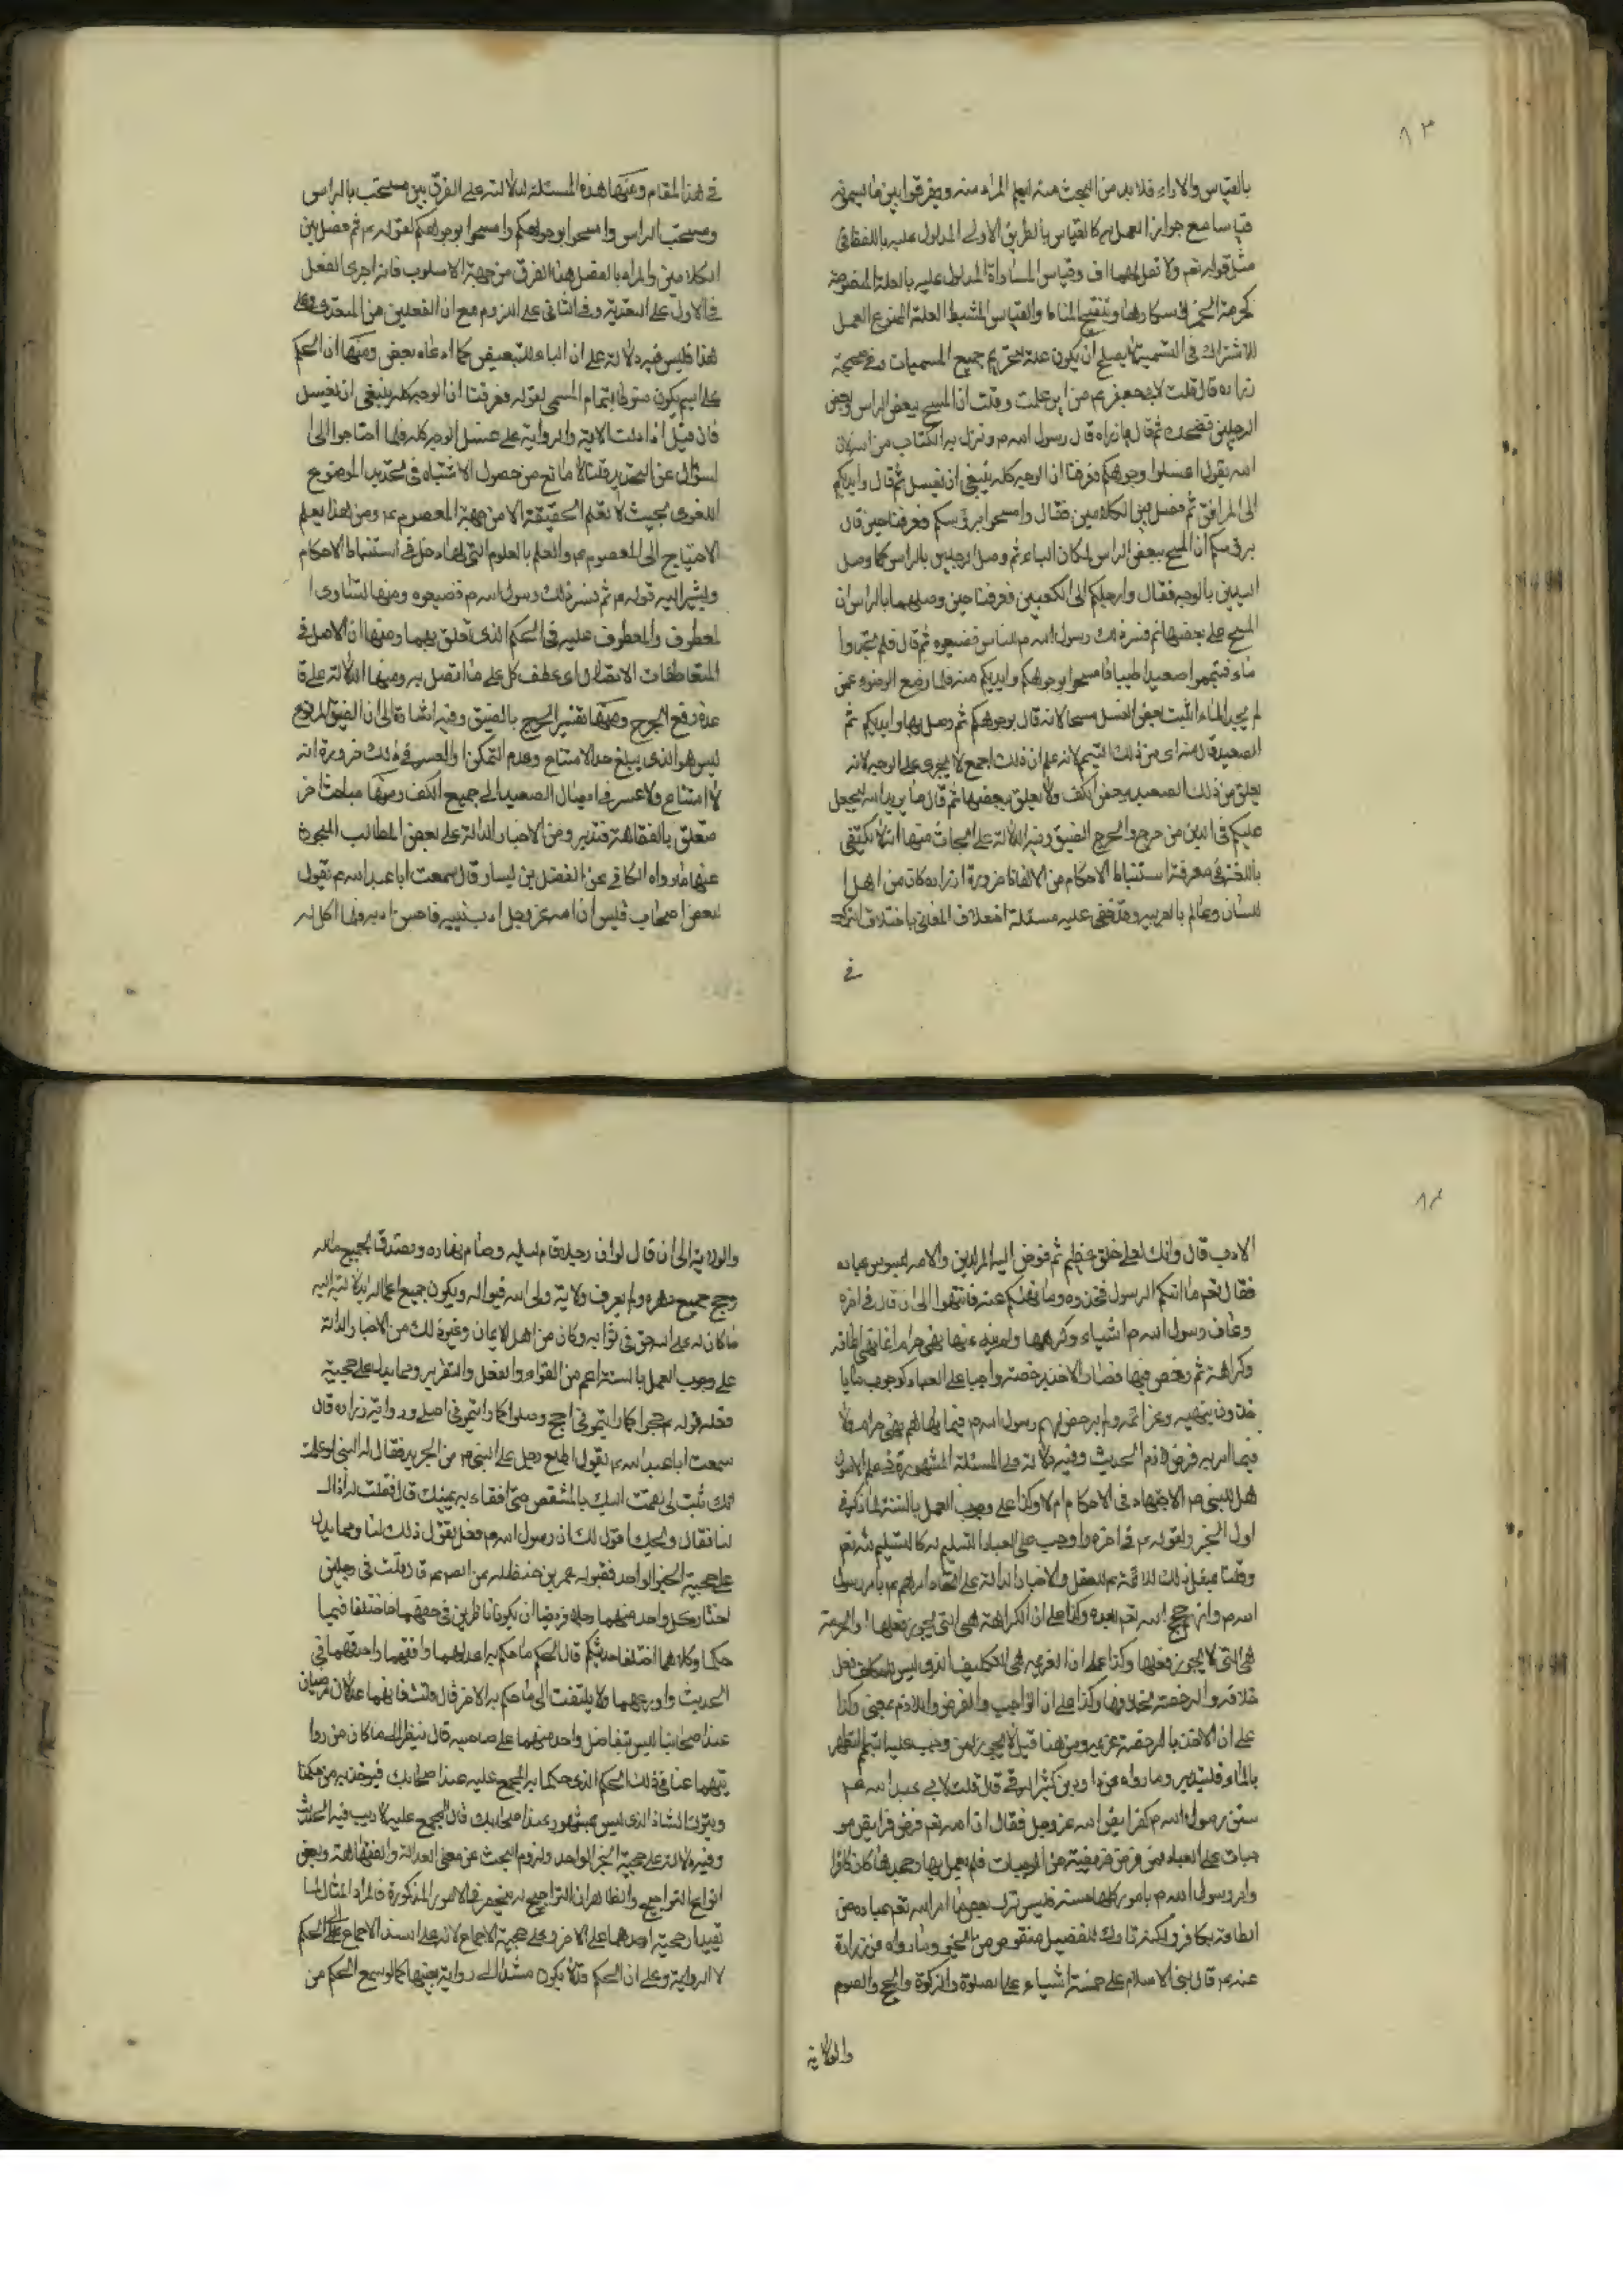 ٨٣
بالقياس والاراء فلا بد من البحث عنه ليعلم المراد منه ويفرقوا بين ما يسمونه
قياسا مع جواز العمل به كالقياس بالطريق الاولى المدلول عليه باللفظ في
مثل قوله تعم ولا تقل لهما اف وقياس المساواة المدلول عليه بالعلة المنصوصة
كحرمة الخمر لاسكارها وتنقيح المناط والقياس المستنبط العلة الممنوع العمل
للاشتراك في التسمية لا يصلح ان يكون علة لتحريم جميع المسميات وفي صحيحة
زرارة قال قلت لابي جعفر عم من اين علمت وقلت ان المسح ببعض الراس وبعض
الرجلين فضحك ثم قال يا زرارة قال رسول الله ص ونزل به الكتاب من الله لان
الله يقول اغسلوا وجوهكم فعرفنا ان الوجه كله ينبغي ان يغسل ثم قال وايديكم
الى المرافق ثم فصل بين الكلامين فقال وامسحوا برؤسكم فعرفنا حين قال
برؤسكم ان المسح ببعض الراس لمكان الباء ثم وصل الرجلين بالراس كما وصل
اليدين بالوجه فقال وارجلكم الى الكعبين فعرفنا حين وصلهما بالراس ان
المسح على بعضها ثم فسر ذلك رسول الله ص للناس فضيعوه ثم قال فلم تجدوا
ماء فتيمموا صعيدا طيبا فامسحوا بوجوهكم وايديكم منه فلما وضع الوضوء عمن
لم يجد الماء اثبت بعض الغسل مسحا لانه قال بوجوهكم ثم وصل بها وايديكم ثم
قال منه اى من ذلك التيمم لانه علم ان ذلك اجمع لا يجرى على الوجه لانه
يعلق من ذلك الصعيد ببعض الكف ولا يعلق ببعضها ثم قال ما يريد الله ليجعل
عليكم في الدين من حرج والحرج الضيق وفيه الدلالة على منها انه لا يكتفى
باللغة في معرفة استنباط الاحكام من الالفاظ ضرورة ان زرارة كان من اهل ا
للسان وعالم بالعربيه وقد خفي عليه مسئلة اختلاف المعنى باختلاف
في
في هذا المقام ومنها هذه المسئلة لدلالته على الفرق بين مسحت بالراس
ومسحت الراس وامسحوا بوجوهكم وامسحوا بوجوهكم لقوله عم ثم فصل بين
الكلامين والمراد بالفصل هذا الفرق من جهة الاسلوب فانه اجرى الفعل
في الاول على التعدية وفي الثاني على اللزوم مع ان الفعلين من المتعدى وعلى
هذا فليس فيه دلالة على ان الباء للتبعيض كما ادعاه بعض ومنها ان الحكم
على اسم يكون منوطا بتمام المسمى لقوله فعرفنا ان الوجه كله ينبغي ان يغسل
فان قيل اذا دلت الاية والرواية على غسل الوجه كله فلما احتاجوا الى ا
لسؤال عن التحديد قلنا لا مانع من حصول الاشتباه في تحديد الموضوع
اللغوى بحيث لا تعلم الحقيقة الا من جهة المعصوم عم ومن هذا يعلم
الاحتياج الى المعصوم عم والعلم بالعلوم التي لها دخل في استنباط الاحكام
ويشير اليه قوله عم ثم فسر ذلك رسول الله ص فضيعوه ومنها لتساوى ا
لمعطوف والمعطوف عليه في الحكم الذى تعلق بهما ومنها ان الاصل في
المتعاطفات الاتصال اى عطف كل على ما اتصل به ومنها الدلالة على قا
عدة رفع الحرج ومنها تفسير الحرج بالضيق وفيه اشارة الى ان الضيق المرفوع
ليس هو الذى يبلغ حد الامتناع وعدم التمكن والعسر في ذلك ضرورة انه
لا امتناع ولا عسر في ايصال الصعيد الى جميع الكف ومنها مباحث اخر
متعلق بالفقاهة فتدبر ومن الاخبار الدالة على بعض المطالب المبحوث
عنها ما رواه الكافي عن الفضل بن يسار قال سمعت ابا عبد الله عم يقول
لبعض اصحاب قيس ان الله عز وجل ادب نبيه فاحسن ادبه فلما اكمل له
٨٤
الادب قال وانك لعلى خلق عظيم ثم فوض اليه امر الدين والامة ليسوس عباده
فقال تعم ما اتيكم الرسول فخذوه وما نهيكم عنه فانتهوا الى ان قال في اخره
وعاف رسول الله ص اشياء وكرهها ولم ينه عنها نهي حرام انما نهى اعافة
وكراهة ثم رخص فيها فصار الاخذ برخصته واجبا على العباد كوجوب ما يا
خذون بنهيه وعزائمه ولم يرخص لهم رسول الله ص فيما نهاهم نهي حرام ولا
فيما امر به فرض لازم الحديث وفيه دلالة على المسئلة المشهورة في علم الاصول
هل للنبي ص الاجتهاد في الاحكام ام لا وكذا على وجوب العمل بالسنة لما ذكر في
اول الخبر ولقوله عم في اخره واوجب على العباد التسليم له كالتسليم لله تعم
وقلنا مثل ذلك للائمة عم للعقل والاخبار الدالة على اتحاد امرهم عم بامر رسول
الله ص وانهم حجج الله تعم بعده وكذا على ان الكراهة هي التي يجوز فعلها والحرمة
هي التي لا يجوز فعلها وكذا على ان العزيمه هي التكليف الذى ليس للمكلف فعل
خلافه والرخصة بخلافها وكذا على ان الواجب والفرض واللازم بمعنى وكذا
على ان الاخذ بالرخصة عزيمه ومن هنا قيل لا يجوز لمن وجب عليه التيمم التطهر
بالماء فليتدبر وما رواه عن داود بن كثير الرقي قال قلت لابي عبد الله عم
سنن رسول الله ص كفرايض الله عز وجل فقال ان الله تعم فرض فرايض مو
جبات على العباد فمن فرض فريضة من الموجبات فلم يعمل بها وجحدها كان كافرا
وامر رسول الله ص بامور كلها حسنة فليس ترك بعض ما امر الله تعم عباده من
الطاعة بكافر ولكنه تارك للفضل منقوص من الخير وما رواه عن زرارة
عنه عم قال بني الاسلام على خمسة اشياء على الصلوة والزكوة والحج والصوم
والولاية
والولاية الى ان قال لو ان رجلا قام ليله وصام نهاره وتصدق بجميع ماله
وحج جميع دهره ولم يعرف ولاية ولى الله فيواله ويكون جميع اعماله بدلالته اليه
ما كان له على الله حق في ثوابه وكان من اهل الايمان وغير ذلك من الاخبار الدالة
على وجوب العمل بالسنة اعم من القول والفعل والتقرير ومما يدل على حجية
فعله قوله عم حجوا كما رايتموني احج وصلوا كما رايتموني اصلى ورواية زرارة قال
سمعت ابا عبد الله عم يقول اطلع رجل على النبي ص من الجريد فقال له النبي لو علمت
انك تثبت لي لقمت اليك بالمشقص حتى افقاء به عينك قال فقلت له اذاك
لنا فقال ويحك اقول لك ان رسول الله ص فعل تقول ذلك لنا ومما يدل
على حجية الخبر الواحد مقبوله عمر بن حنظله عن الصم عم قال قلت في رجلين
اختار كل واحد منهما رجلا فرضيا ان يكونا ناظرين في حقهما فاختلفا فيما
حكما وكلاهما اختلفا حديثكم قال الحكم ما حكم به اعدلهما وافقههما واصدقهما في
الحديث واورعهما ولا يلتفت الى ما حكم به الاخر قال قلت فانهما عدلان مرضيان
عند اصحابنا ليس يتفاضل واحد منهما على صاحبه قال ينظر الى ما كان من روا
يتهما عنا في ذلك الحكم الذى حكما به المجمع عليه عند اصحابك فيؤخذ به من حكمنا
ويترك الشاذ الذى ليس بمشهور عند اصحابك فان المجمع عليه لا ريب فيه الحديث
وفيه دلالة على حجية الخبر الواحد ولزوم البحث عن معنى العدالة والفقاهة وبعض
انواع التراجيح والظاهر ان التراجيح لم ينحصر في الامور المذكورة فالمراد المثال لما
يفيد ارجحية احدهما على الاخر وعلى حجية الاجماع لانه على اسند الاجماع الى الحكم
لا الرواية وعلى ان الحكم قد لا يكون مستندا الى رواية بعينها كما لو سمع الحكم من